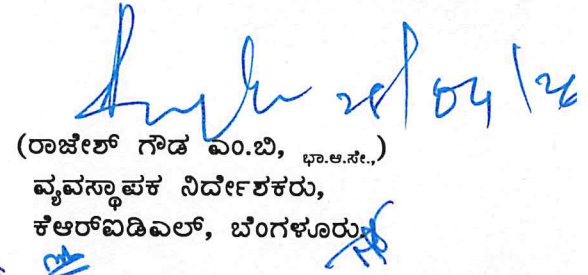 28/04/26
(ರಾಜೇಶ್ ಗೌಡ ಎಂ.ಬಿ, ಭಾ.ಆ.ಸೇ.,)
ವ್ಯವಸ್ಥಾಪಕ ನಿರ್ದೇಶಕರು,
ಕೆಆರ್‌ಐಡಿಎಲ್, ಬೆಂಗಳೂರು